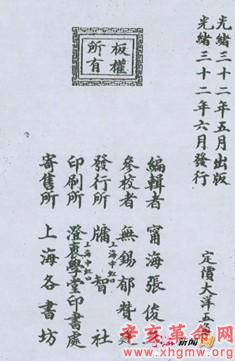 光緒三十二年五月出版
光緒三十二年六月發行
板權
所有
定價大洋五
編輯者 甯海張俊
參校者 無錫郁贊廷
發行所 上海牖智社
印刷所 上海澄衷學堂印書處
寄售所 上海各書坊
辛亥革命网
www.xhgmw.org